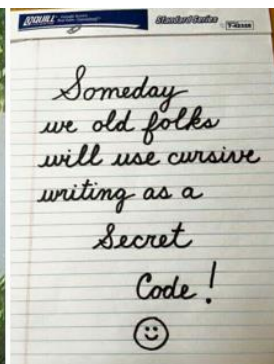 QUILL
Standard Series
Someday
we old folks
will use cursive
writing as a
Secret
Code!